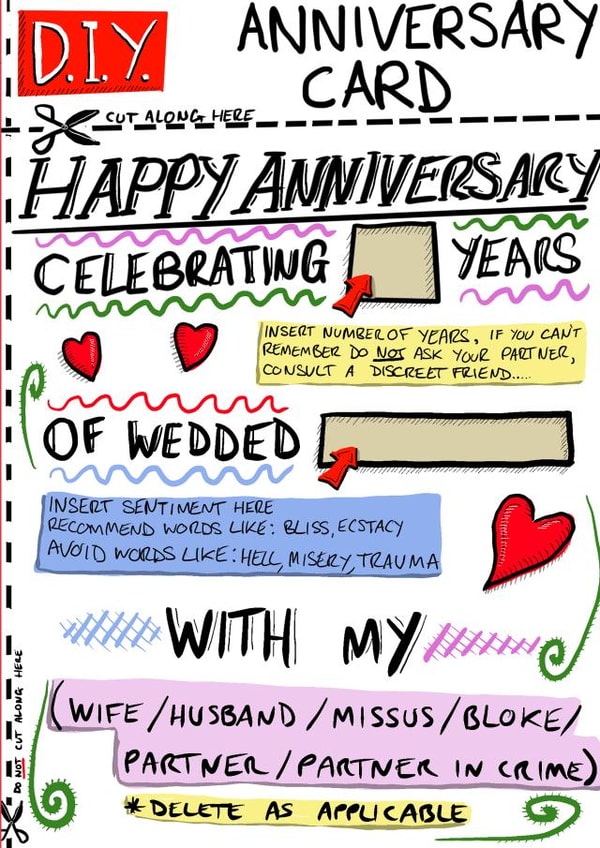 D.I.Y.
ANNIVERSARY
CARD
CUT ALONG HERE
HAPPY ANNIVERSARY
CELEBRATING YEARS
INSERT NUMBER OF YEARS, IF YOU CAN'T
REMEMBER DO NOT ASK YOUR PARTNER,
CONSULT A DISCREET FRIEND.....
OF WEDDED
INSERT SENTIMENT HERE
RECOMMEND WORDS LIKE: BLISS, ECSTACY
AVOID WORDS LIKE: HELL, MISERY, TRAUMA
WITH MY
(WIFE/HUSBAND/MISSUS/BLOKE/
PARTNER/PARTNER IN CRIME)
* DELETE AS APPLICABLE
DO NOT CUT ALONG HERE